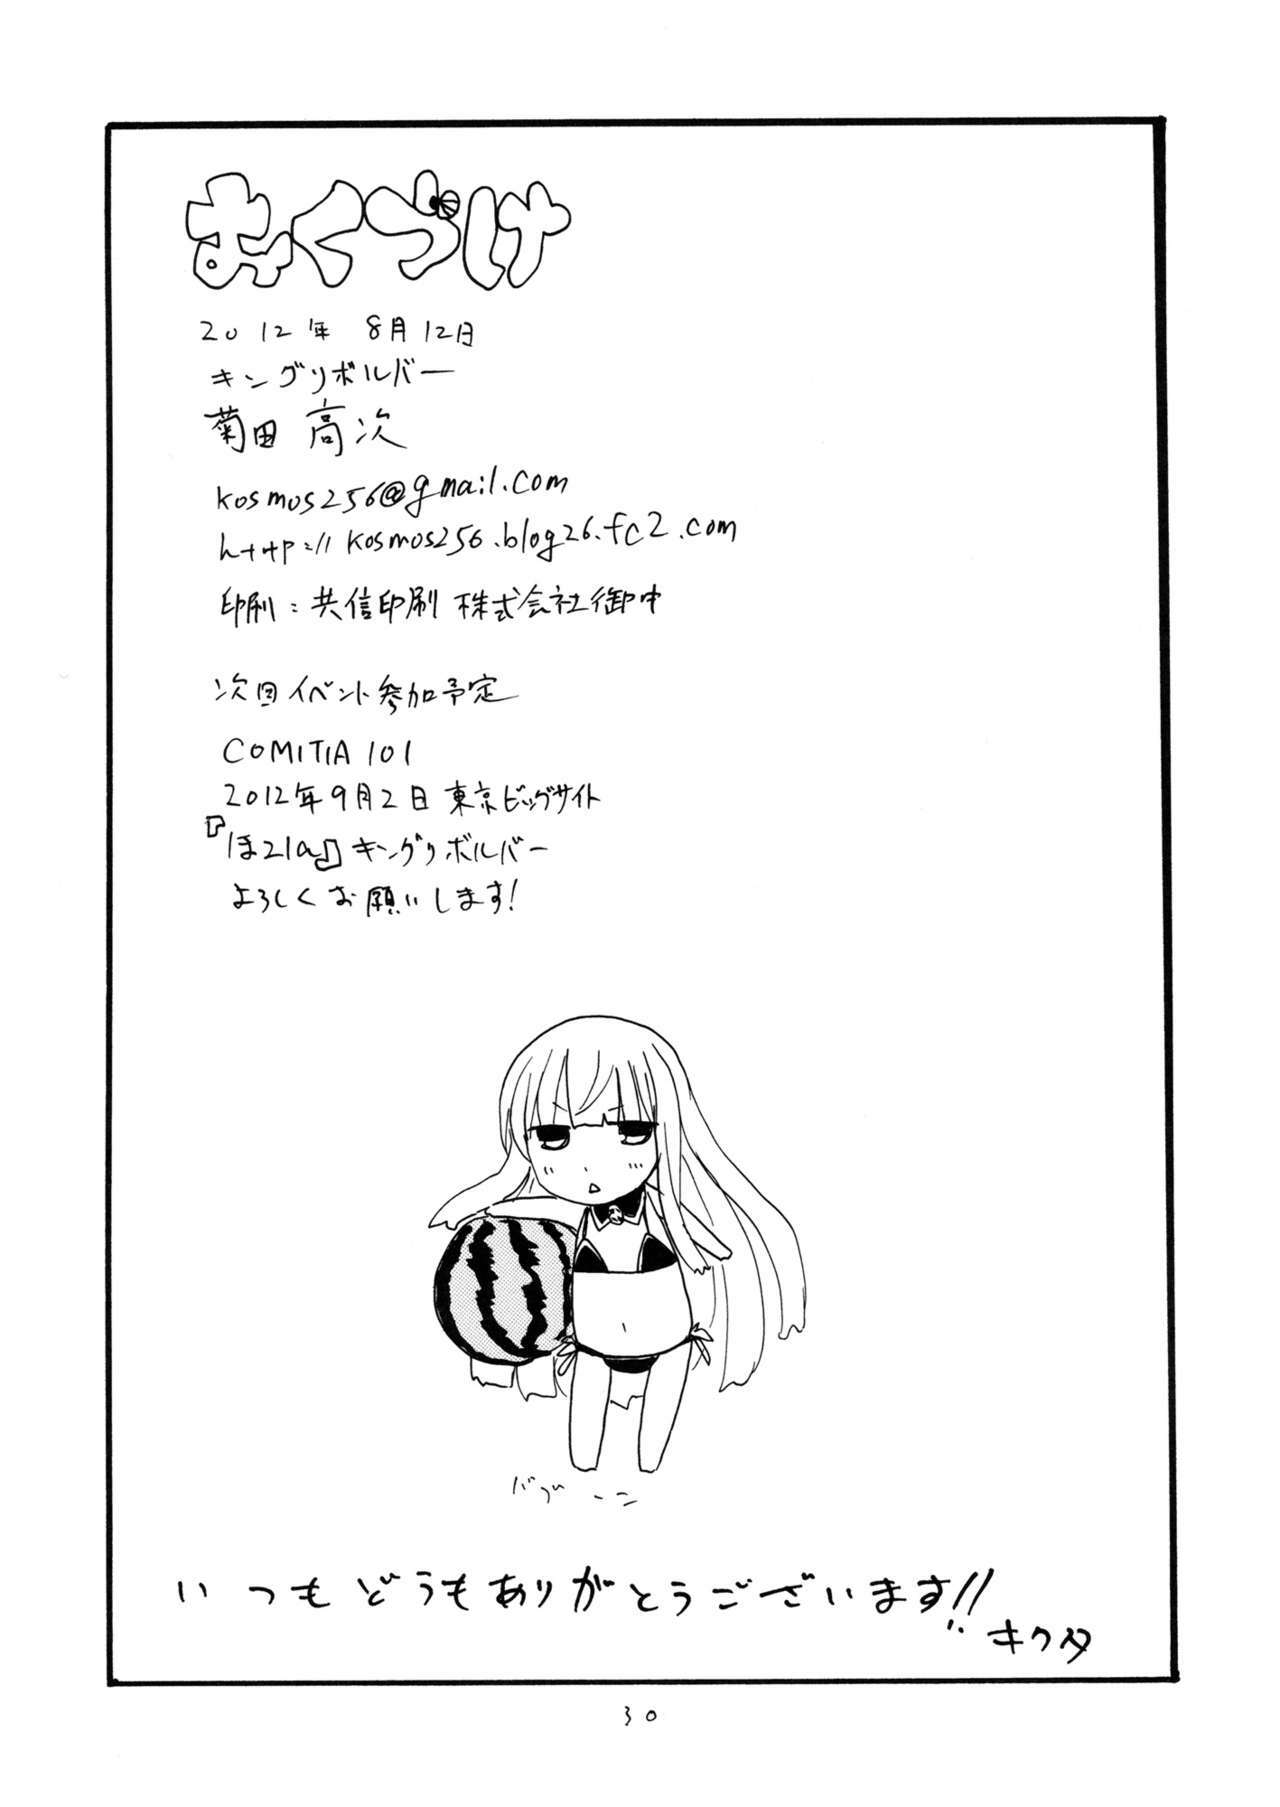 おくづけ
2012年 8月12日
キングリボルバー
菊田 高次
kosmos256@gmail.com
http://kosmos256.blog26.fc2.com
印刷：共信印刷 株式会社御中
次回イベント参加予定
COMITIA 101
2012年9月2日 東京ビッグサイト
キングリボルバー
よろしくお願いします!
いつもどうもありがとうございます!!
キクタ
30